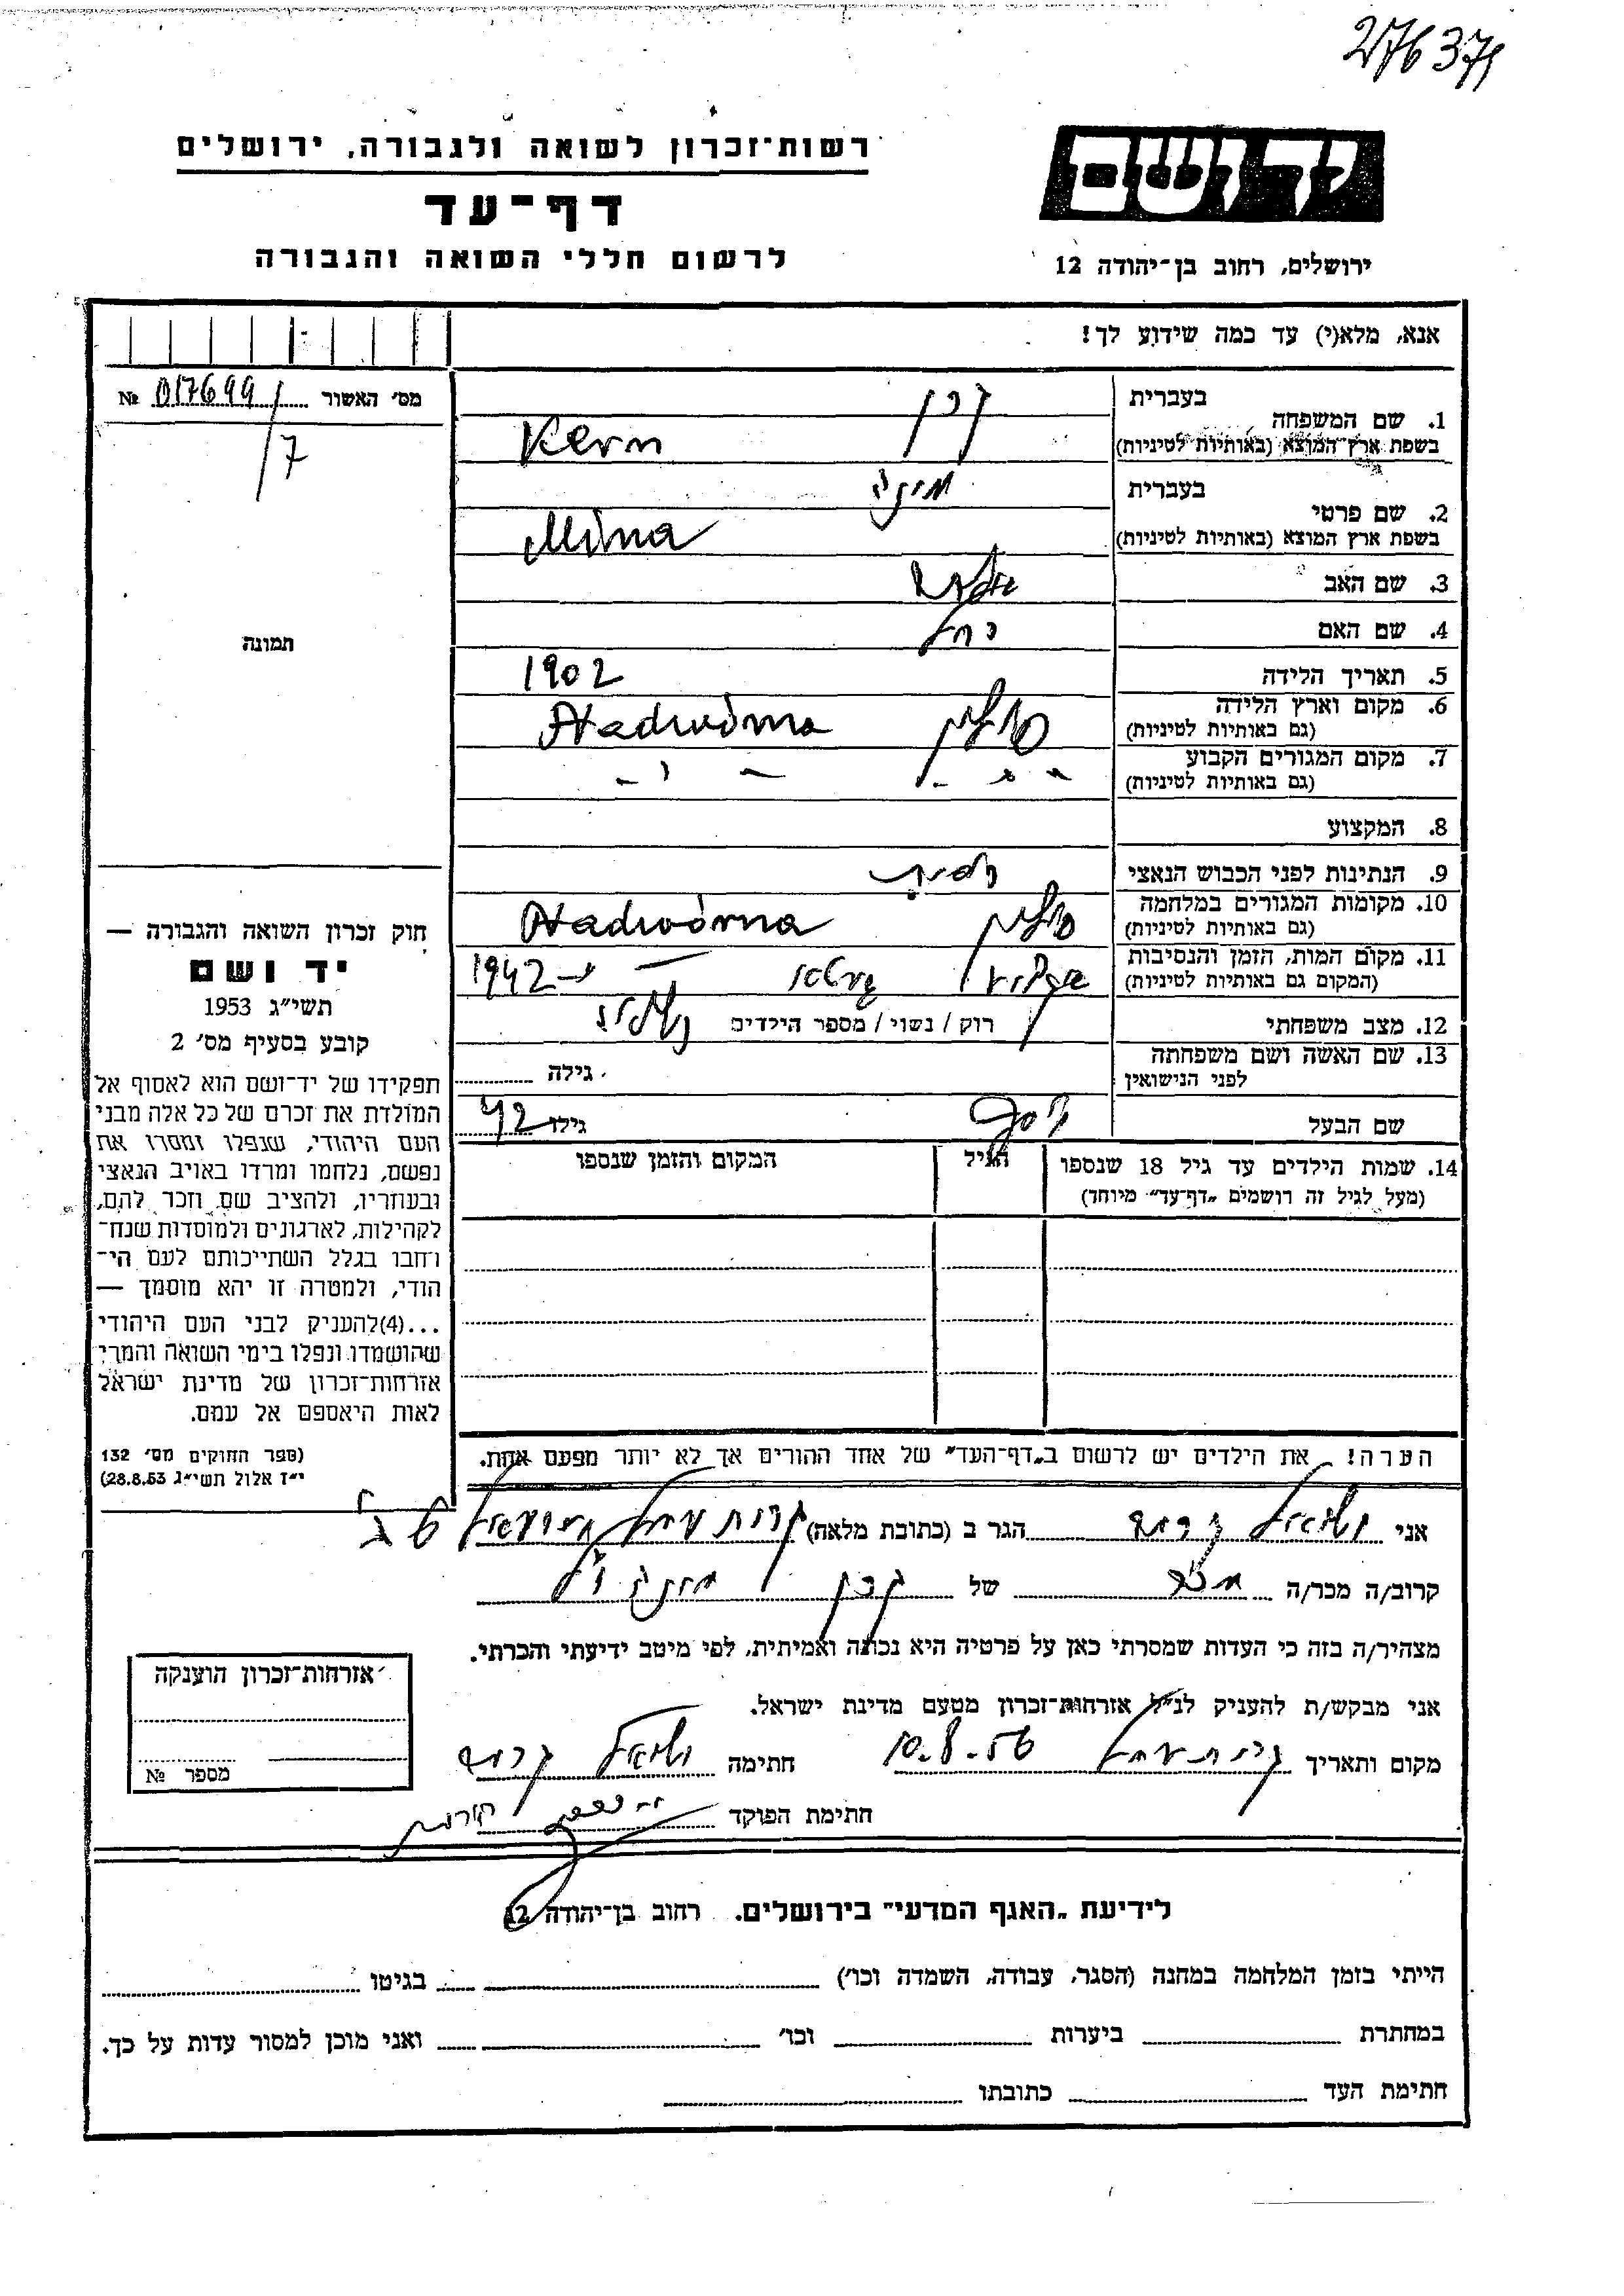 276371
רשות־זכרון לשואה ולגבורה, ירושלים
דף־עד
לרשום חללי השואה והגבורה
יד ושם
ירושלים, רחוב בן־יהודה 12
אנא, מלא(י) עד כמה שידוע לך!
מס׳ האשור 017699/ №
/7
תמונה
1. שם המשפחה
בעברית קרן
בשפת ארץ־המוצא (באותיות לטיניות) Kern
2. שם פרטי
בעברית מינה
בשפת ארץ המוצא (באותיות לטיניות) Mina
3. שם האב
4. שם האם רחל
5. תאריך הלידה 1902
6. מקום וארץ הלידה
(גם באותיות לטיניות) פולין Nadwórna
7. מקום המגורים הקבוע
(גם באותיות לטיניות)
8. המקצוע
9. הנתינות לפני הכבוש הנאצי
10. מקומות המגורים במלחמה
(גם באותיות לטיניות) פולין Nadwórna
11. מקום המות, הזמן והנסיבות
(המקום גם באותיות לטיניות) 1942
12. מצב משפחתי רוק / נשוי / מספר הילדים
13. שם האשה ושם משפחתה
לפני הנישואין גילה
שם הבעל יוסף גילו 42
14. שמות הילדים עד גיל 18 שנספו
(מעל לגיל זה רושמים „דף־עד״ מיוחד)
הגיל
המקום והזמן שנספו
חוק זכרון השואה והגבורה —
יד ושם
תשי״ג 1953
קובע בסעיף מס׳ 2
תפקידו של יד־ושם הוא לאסוף אל
המולדת את זכרם של כל אלה מבני
העם היהודי, שנפלו ומסרו את
נפשם, נלחמו ומרדו באויב הנאצי
ובעוזריו, ולהציב שם וזכר להם,
לקהילות, לארגונים ולמוסדות שנח־
רחבו בגלל השתייכותם לעם הי־
הודי, ולמטרה זו יהא מוסמך —
...(4)להעניק לבני העם היהודי
שהושמדו ונפלו בימי השואה והמרי
אזרחות־זכרון של מדינת ישראל
לאות היאספם אל עמם.
(ספר החוקים מס׳ 132
י״ז אלול תשי״ג 28.8.53)
הערה! — את הילדים יש לרשום ב„דף־העד״ של אחד ההורים אך לא יותר מפעם אחת.
אני הגר ב (כתובת מלאה)
קרוב/ה מכר/ה מכר של קרן מינה ז״ל
מצהיר/ה בזה כי העדות שמסרתי כאן על פרטיה היא נכונה ואמיתית, לפי מיטב ידיעתי והכרתי.
אני מבקש/ת להעניק לנ״ל אזרחות־זכרון מטעם מדינת ישראל.
מקום ותאריך 10.8.56 חתימה
חתימת הפוקד
אזרחות־זכרון הוענקה
מספר №
לידיעת „האגף המדעי״ בירושלים. רחוב בן־יהודה 12
הייתי בזמן המלחמה במחנה (הסגר, עבודה, השמדה וכו׳) בגיטו
במחתרת ביערות וכו׳ ואני מוכן למסור עדות על כך.
חתימת העד כתובתו